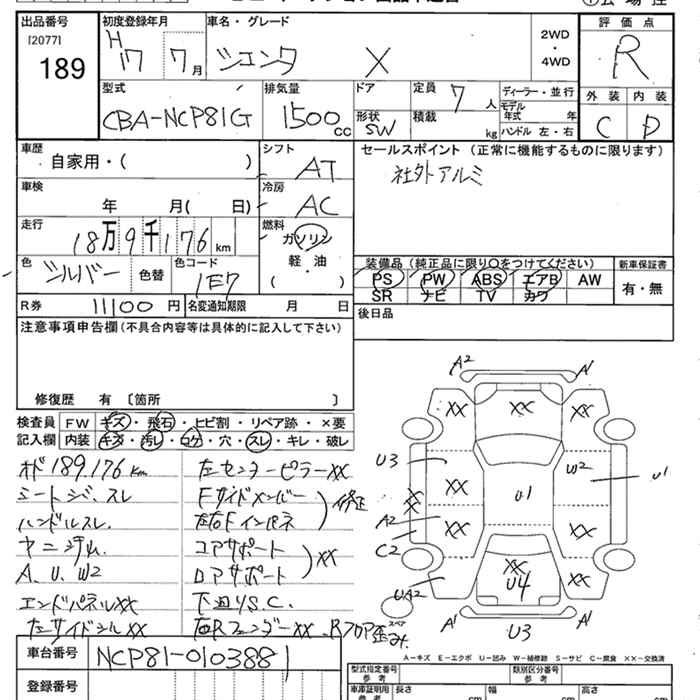 出品番号
[2077]
189
初度登録年月
H 17 年 7 月
車名・グレード
シエンタ X
2WD
・
4WD
評価点
R
外装 内装
C D
型式
CBA-NCP81G
排気量
1500 cc
ドア
形状
SW
定員
7 人
積載
kg
ディーラー・並行
モデル年式 年
ハンドル 左・右
車歴
自家用・( )
シフト
AT
セールスポイント (正常に機能するものに限ります)
社外アルミ
車検
年 月( 日)
冷房
AC
走行
18万9千176 km
燃料
ガソリン
軽・油
( )
色
シルバー
色替
色コード
1E7
装備品 (純正品に限り○をつけてください)
PS PW ABS エアB AW
SR ナビ TV カワ
新車保証書
有・無
R券 11100 円
名変通知期限 月 日
後日品
注意事項申告欄(不具合内容等は具体的に記入して下さい)
修復歴 有 〔箇所 〕
検査員記入欄
FW キズ・飛石・ヒビ割・リペア跡・×要
内装 キズ・汚レ・コゲ・穴・スレ・キレ・破レ
オド 189,176 km
シートシミ、スレ
ハンドルスレ
ヤニジみ
A、U、W2
エンドパネルXX
左サイドシルXX
左センターピラーXX
Fサイドメンバー
左右Fインパネ
修正
コアサポート
ロアサポート
XX
下廻りS.C.
右RフェンダーXX
Rフロア歪み
A2
A1
XX
XX
XX
U3
W2
U1
XX
XX
U1
A2
XX
XX
C2
XX
U4
XX
UA2
スペア
A1
U3
A1
A=キズ E=エクボ U=凹み W=補修跡 S=サビ C=腐食 XX=交換済
車台番号
NCP81-0103881
登録番号
型式指定番号
参考
類別区分番号
参考
車庫証明用
参考
長さ
cm
幅
cm
高さ
cm